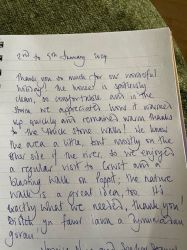 2nd to 5th January 2019
Thank you so much for our wonderful
holiday! The house is spotlessly
clean, so comfortable and in the
storm we appreciated how it warmed
up quickly and remained warm thanks
to the thick stone walls! We know
the area a little, but mostly on the
other side of the river, so we enjoyed
a regular visit to Cwrist and a
blasting walk to Poppit, the nature
walk is a great idea too. It's
exactly what we needed, thank you
Diolch yn fawr iawn a dymuniadau
gorau!